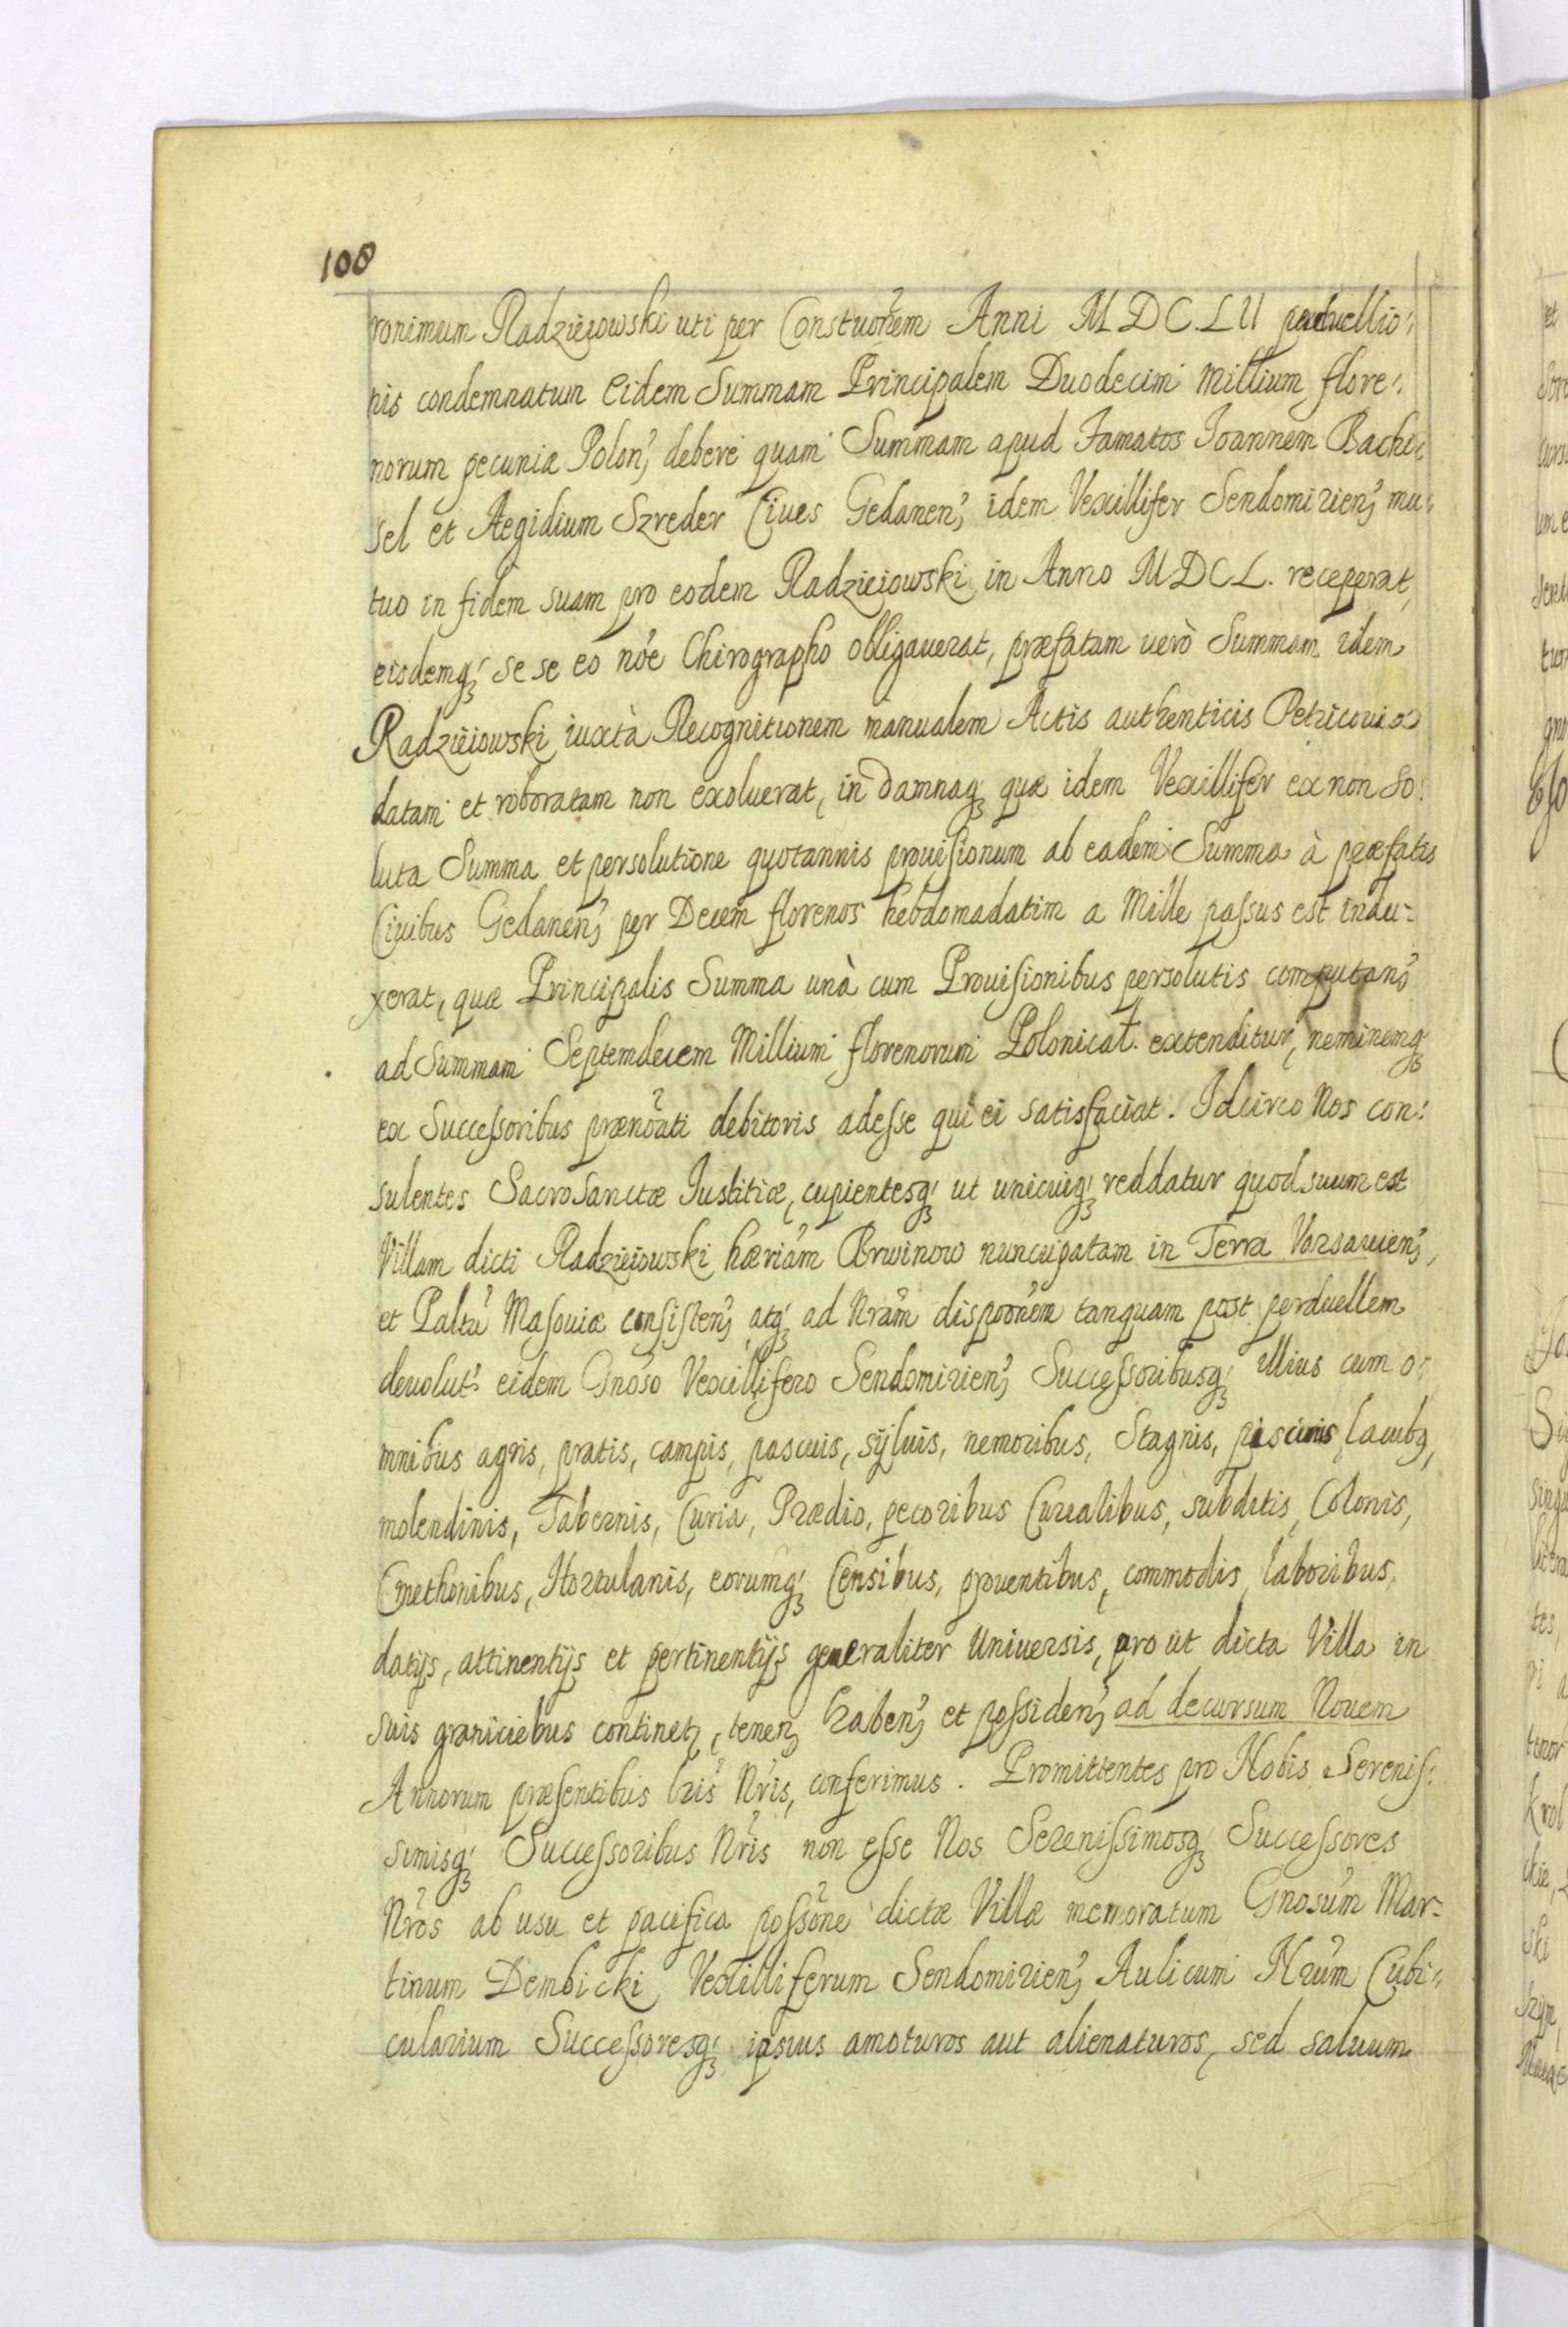 108
ronimum Radzieiowski uti per Constuõnem Anni M D C. LII perduellio:
nis condemnatum Eidem Summam Principalem Duodecim Millium flore:
norum pecuniæ Polon, debere quam Summam apud Famatos Ioannem Backi:
sel et Aegidium Szreder Ciues Gedanen, idem Vexillifer Sendomirien, mu:
tuo in fidem suam pro eodem Radzieiowski in Anno M D C L. receperat,
eisdemq; se se eo nõe Chirographo obligauerat, præfatam uerò Summam idem
Radzieiowski iuxtà Recognitionem manualem Actis authenticis Petricouiæ
datam et roboratam non exoluerat, in damnaq; quæ idem Vexillifer ex non so:
luta Summa et persolutione quotannis prouisionum ab eadem Summa à præfatis
Ciuibus Gedanen, per Decem florenos hebdomadatim a Mille passus est indu-
xerat, quæ Principalis Summa unà cum Prouisionibus persolutis computan,
ad Summam Septemdecem Millium florenorum Polonical. extenditur, neminemq;
ex Successoribus prænõati debitoris adesse qui ei satisfaciat. Idcirco Nos con:
sulentes SacroSanctæ Iustitiæ, cupientesq; ut unicuiq; reddatur quod suum est
Villam dicti Radzieiowski hæriãm Brwinow nuncupatam in Terra Varsauien,
et Paltũ Masouiæ consisten, atq; ad Nrãm dispoõnem tanquam post perduellem
deuolut, eidem Gnõso Vexillifero Sendomirien, Successoribusq; illius cum o:
mnibus agris, pratis, campis, pascuis, syluis, nemoribus, Stagnis, piscinis, lacubq,
molendinis, Tabernis, Curia, Prædio, pecoribus Curialibus, subditis, Colonis,
Cmethonibus, Hortulanis, eorumq; Censibus, prouentibus, commodis, laboribus,
datijs, attinentijs et pertinentijs generaliter Uniuersis, pro ut dicta Villa in
suis graniciebus continet, tenen, haben, et possiden, ad decursum Nouem
Annorum præsentibus lrĩs Nrĩs, conferimus. Promittentes pro Nobis Serenis:
simisq; Successoribus Nrĩs non esse Nos Serenissimosq; Successores
Nrõs ab usu et pacifica possõne dictæ Villæ memoratum Gnosũm Mar-
tinum Dembicki Vexilliferum Sendomirien, Aulicum Nrũm Cubi:
cularium Successoresq; ipsius amoturos aut alienaturos, sed saluum